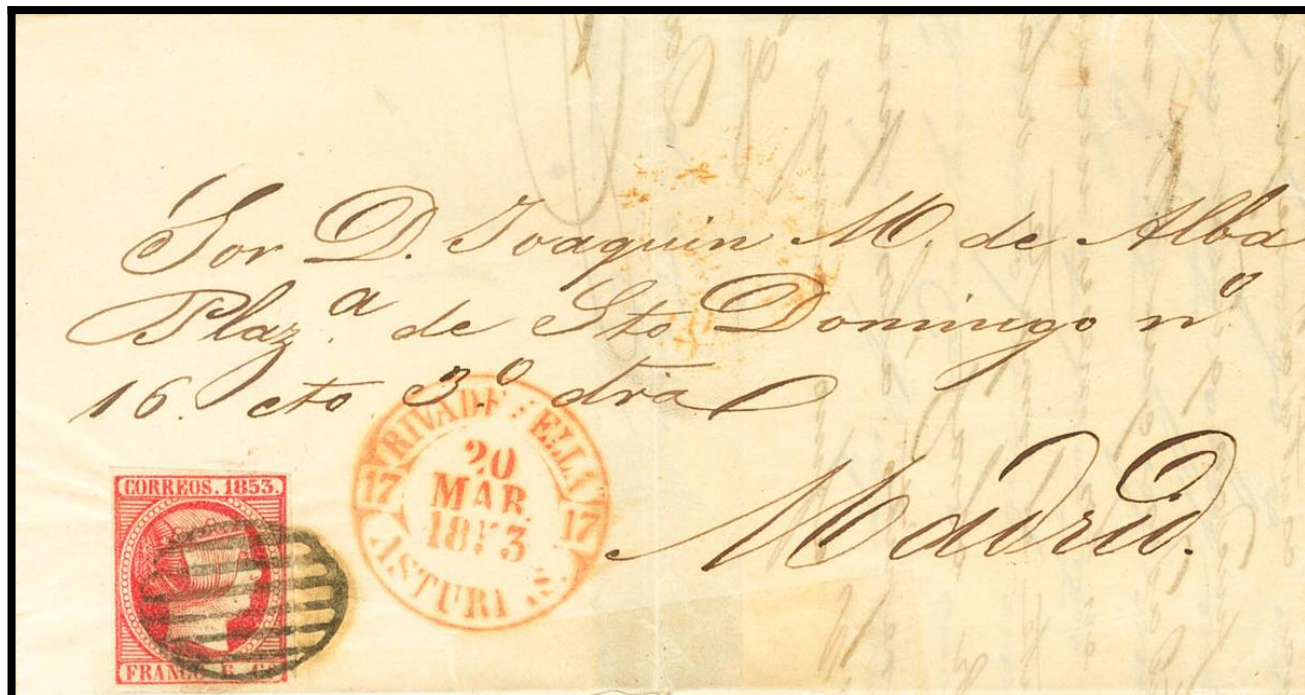 Sor D. Joaquin M. de Alba
Plaz.ª de Sto Domingo nº
16. cto. 3.º dra
Madrid.
CORREOS. 1853.
FRANCO
RIVADE ELLA
17 17
20
MAR
18 3
ASTURI S.